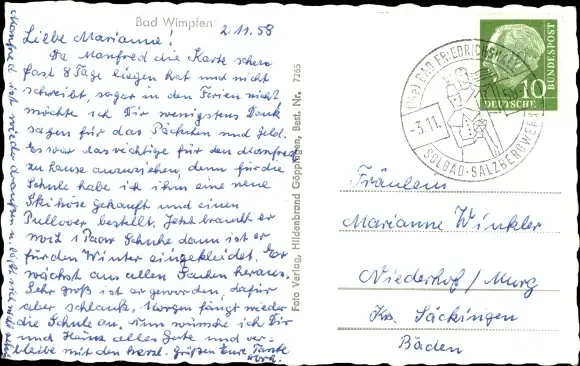 Bad Wimpfen
2.11.58
Liebe Marianne!
Da Manfred die Karte schon
fast 8 Tage liegen hat und nicht
schreibt, sogar in den Ferien nicht
möchte ich Dir wenigstens Dank
sagen für das Päckchen und Geld.
Es war das richtige für den Manfred
zu Hause anzuziehen, denn für die
Schule habe ich ihm eine neue
Skihose gekauft und einen
Pullover bestellt. Jetzt braucht er
noch 1 Paar Schuhe dann ist er
für den Winter eingekleidet. Er
wächst aus allen Sachen heraus.
Sehr groß ist er geworden, dafür
aber schlank. Morgen fängt wieder
die Schule an. Nun wünsche ich Dir
und Heinz alles Gute und ver-
bleibe mit den herzl. Grüßen Eure Tante
Foto Verlag, Hildenbrand Göppingen, Best. Nr. 7265
BAD FRIEDRICHSHALL
-3.11.
SOLBAD-SALZBERGWERK
10
DEUTSCHE BUNDESPOST
Fräulein
Marianne Winkler
Niederhof/Murg
Krs. Säckingen
Baden